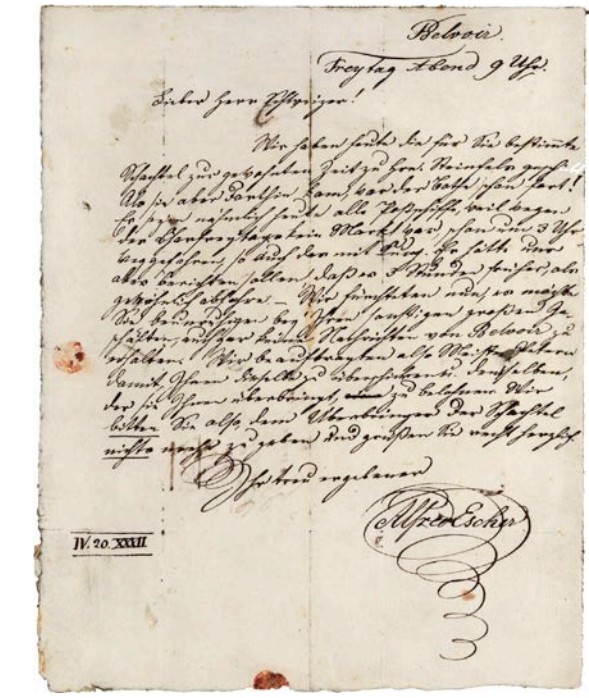 Belvoir.
Freytag Abend 9 Uhr.
Lieber Herr Schweizer!
Wir haben heute die für Sie bestimmte
Schachtel zur gewohnten Zeit zu Steinfels
Als sie aber dorthin kam, war der Bothe schon fort!
Es seyen nähmlich heute alle Postschiffe, weil wegen
des Charfreytags kein Markt war, schon um 3 Uhr
weggefahren, so auch der mit Er hätte uns
aber berichten sollen, daß er 3 Stunden früher, als
gewöhnlich abfahre – Wir fürchteten nun, es möchte
Sie beunruhigen bey Ihren sonstigen großen Ge-
schäften, auch gar keine Nachrichten von Belvoir zu
erhalten. Wir beauftragten also Meister Petern
damit, Ihnen dieselbe zu überschicken u. demselben,
der sie Ihnen überbringt, zu belohnen. Wir
bitten Sie also, dem Überbringer der Schachtel
nichts mehr zu geben und grüßen Sie recht herzlich
Ihr treu ergebener
Alfred Escher
IV. 20. XXXII